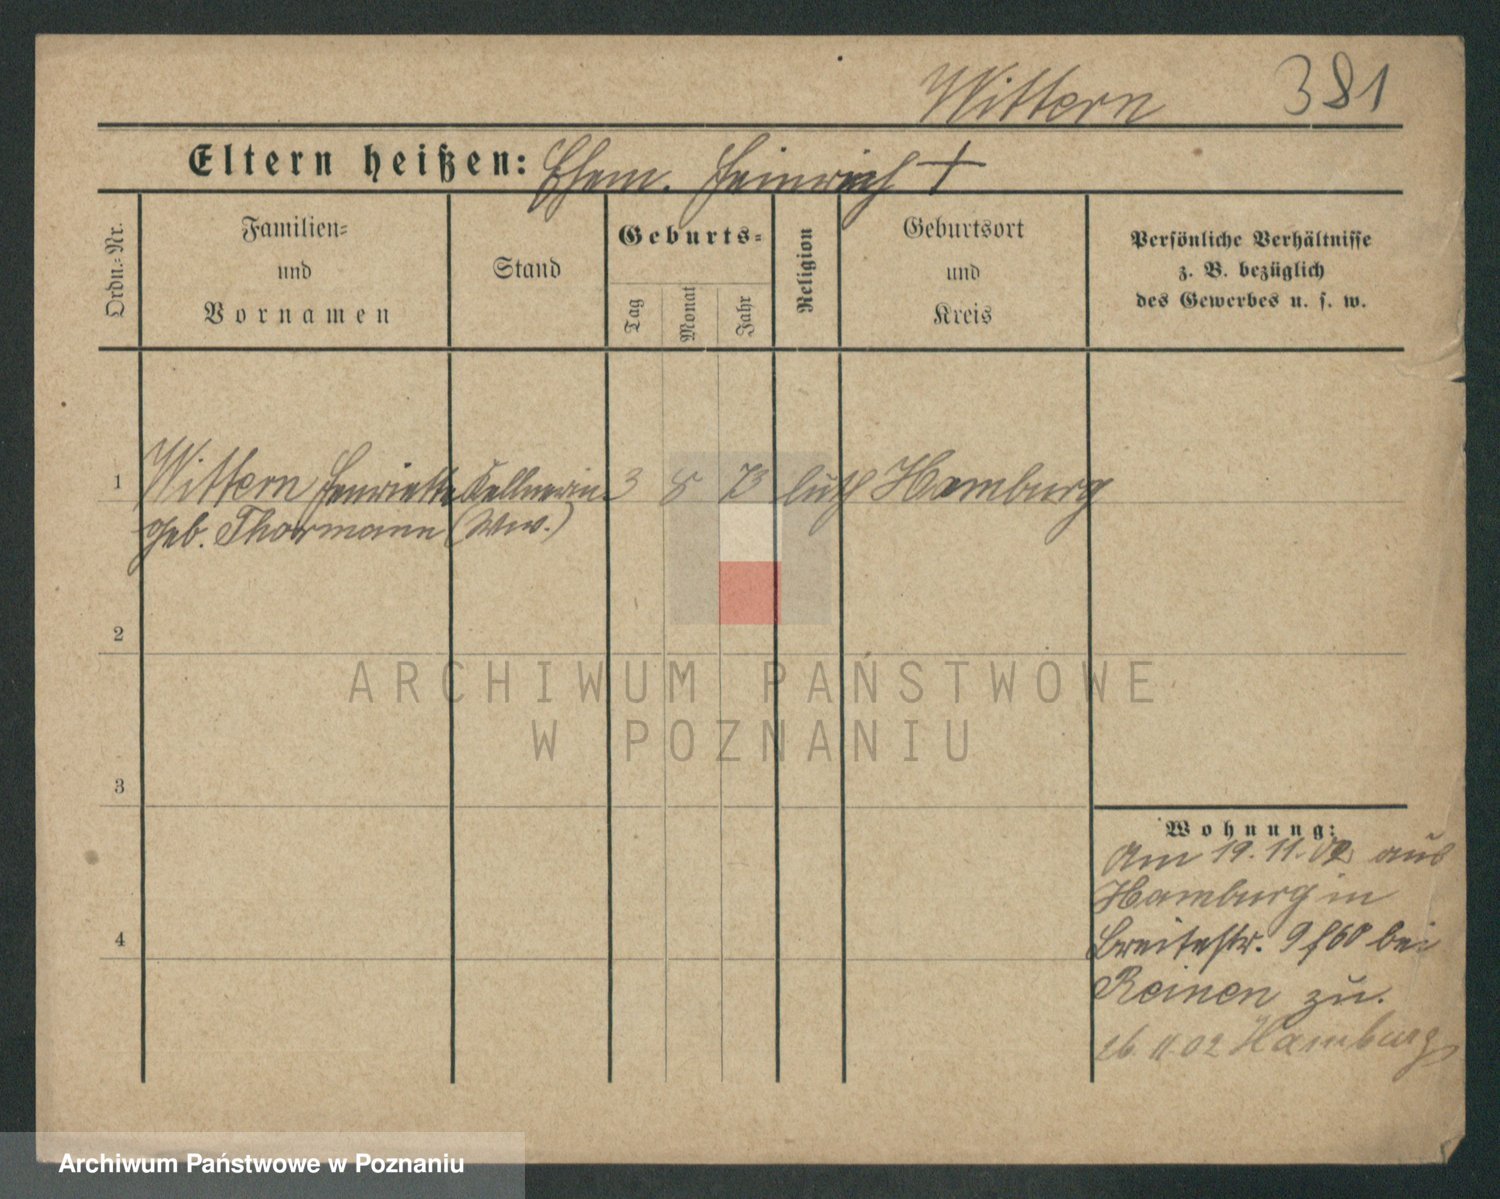 Wittern 381
Eltern heißen: Ehem. Heinrich †
Ordn.-Nr.
Familien-
und
Vornamen
Stand
Geburts-
Tag
Monat
Jahr
Religion
Geburtsort
und
Kreis
Persönliche Verhältnisse
z. B. bezüglich
des Gewerbes u. s. w.
1 Wittern Henriette Kellnerin 3 8 73 luth Hamburg
geb. Thormann (Ww.)
2
ARCHIWUM PAŃSTWOWE
W POZNANIU
3
Wohnung:
Am 19.11.02 aus
Hamburg in
4
Breitestr. 9 bei
Reinen zu.
26 11 02 Hamburg
Archiwum Państwowe w Poznaniu